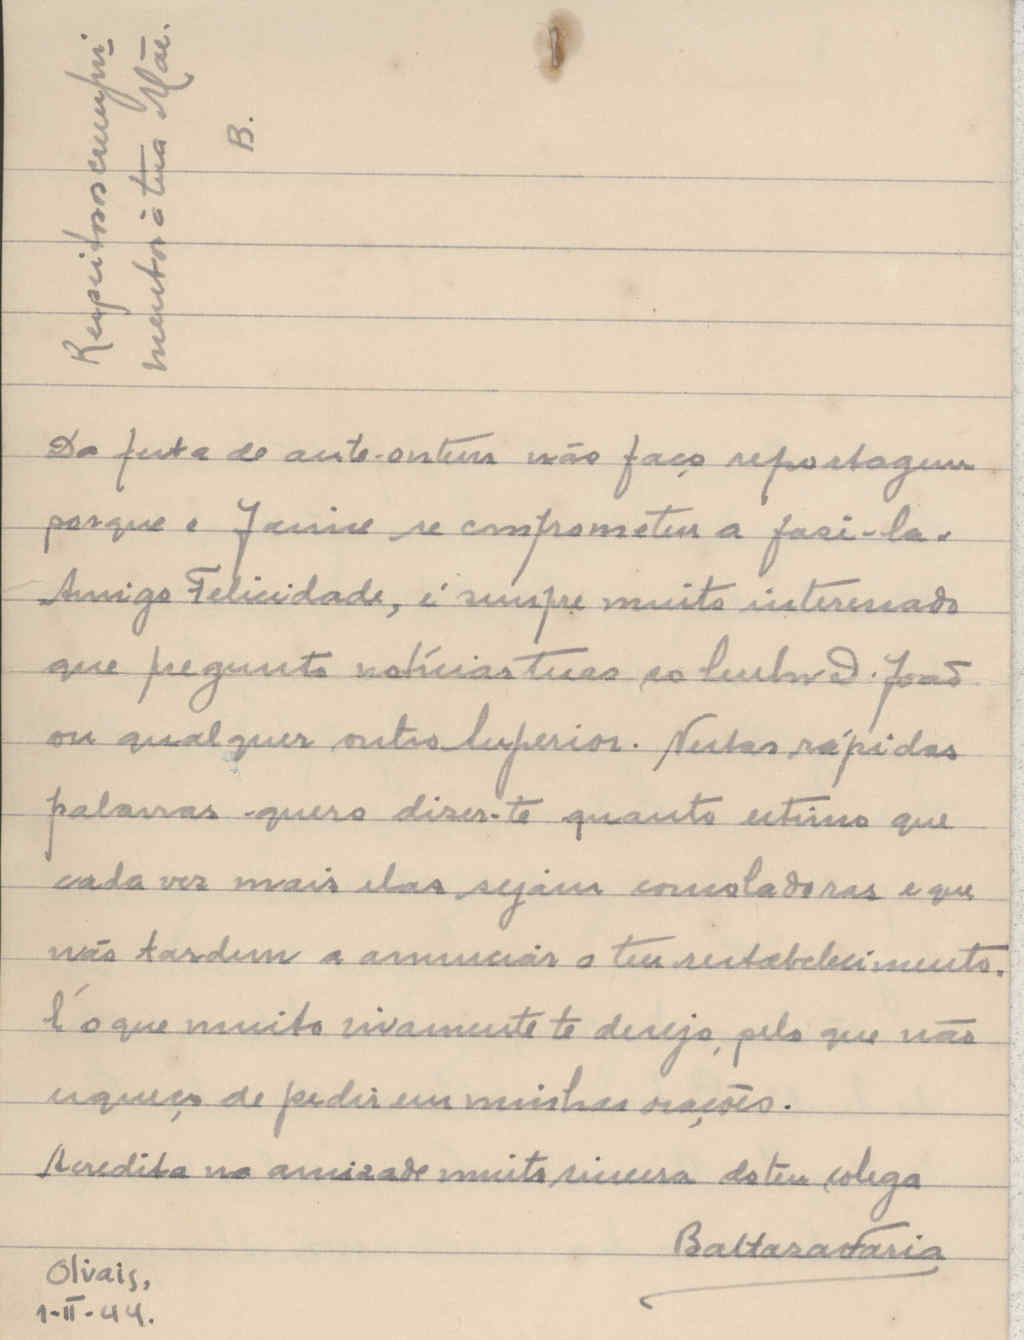 Respeitosos cumpri-
mentos à tua Mãe.
B.
Da festa de ante-ontem não faço reportagem
porque o Janine se comprometeu a fazê-la.
Amigo Felicidade, é sempre muito interessado
que pregunto notícias tuas ao Senhor D. João
ou qualquer outro Superior. Nestas rápidas
palavras quero dizer-te quanto estimo que
cada vez mais elas sejam consoladoras e que
não tardem a anunciar o teu restabelecimento.
É o que muito vivamente te desejo, pelo que não
esqueço de pedir em minhas orações.
Acredita na amizade muito sincera do teu colega
Baltazar Faria
Olivais,
1-II-44.